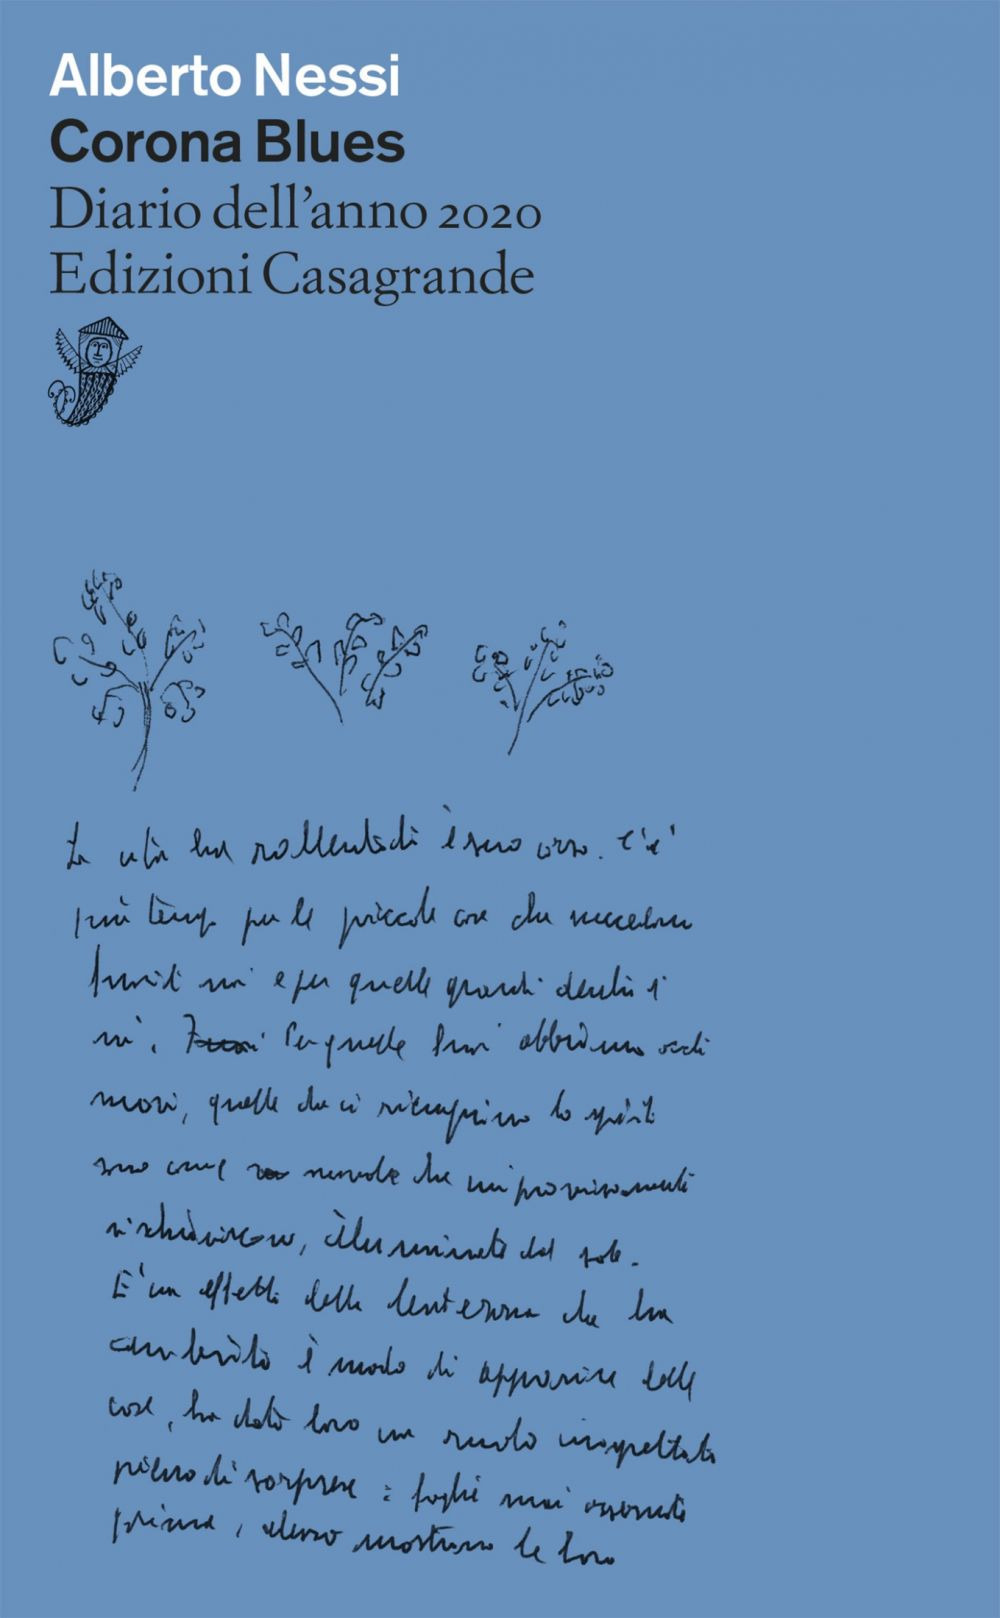 Alberto Nessi
Corona Blues
Diario dell’anno 2020
Edizioni Casagrande
La vita ha rallentato il suo corso. C'è
più tempo per le piccole cose che succedono
fuori di noi e per quelle grandi dentro di
noi. Per quelle fuori abbiamo occhi
nuovi, quelle che ci riempiono lo spirito
sono come nuvole che improvvisamente
si schiariscono, illuminate dal sole.
E' un effetto della lentezza che ha
cambiato il modo di apparire delle
cose, ha dato loro un ruolo inaspettato
pieno di sorprese: foglie mai osservate
prima, adesso mostrano le loro